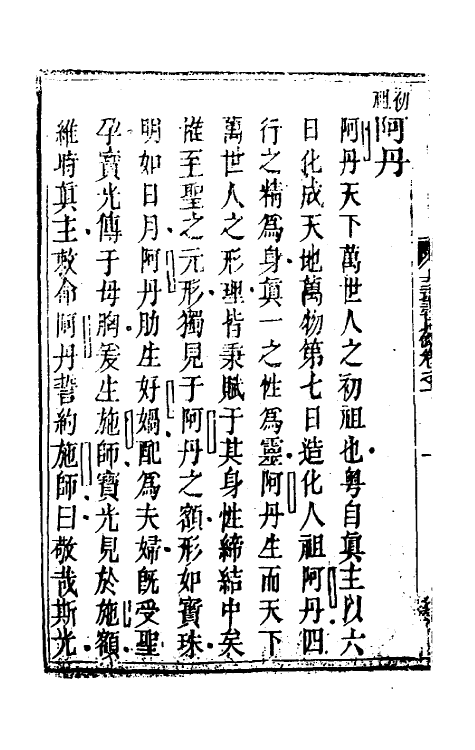 初祖阿丹
阿丹天下萬世人之初祖也粵自真主以六
日化成天地萬物第七日造化人祖阿丹四
行之精爲身真一之性爲靈阿丹生而天下
萬世人之形理皆秉賦于其身性締結中矣
惟至聖之元形獨見于阿丹之額形如寶珠
明如日月阿丹肋生好媧配爲夫婦旣受聖
孕寶光傳于母胸爰生施師寶光見於施額
維時真主敕命阿丹誓約施師曰敬哉斯光